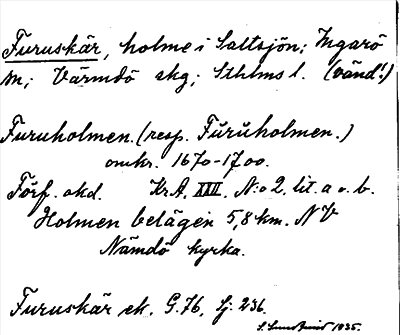 Furuskär, holme i Saltsjön; Ingarö
sn; Värmdö skg; Sthlms l. (vänd!)
Furuholmen. (resp. Fŭrŭholmen.)
omkr. 1670-1700.
Förf. okd. Kr.A. XXII. N:o 2. lit. a o. b.
Holmen belägen 5,8 km. NV
Nämdö kyrka.
Furuskär ek. G.76. Sj: 236.
1935.